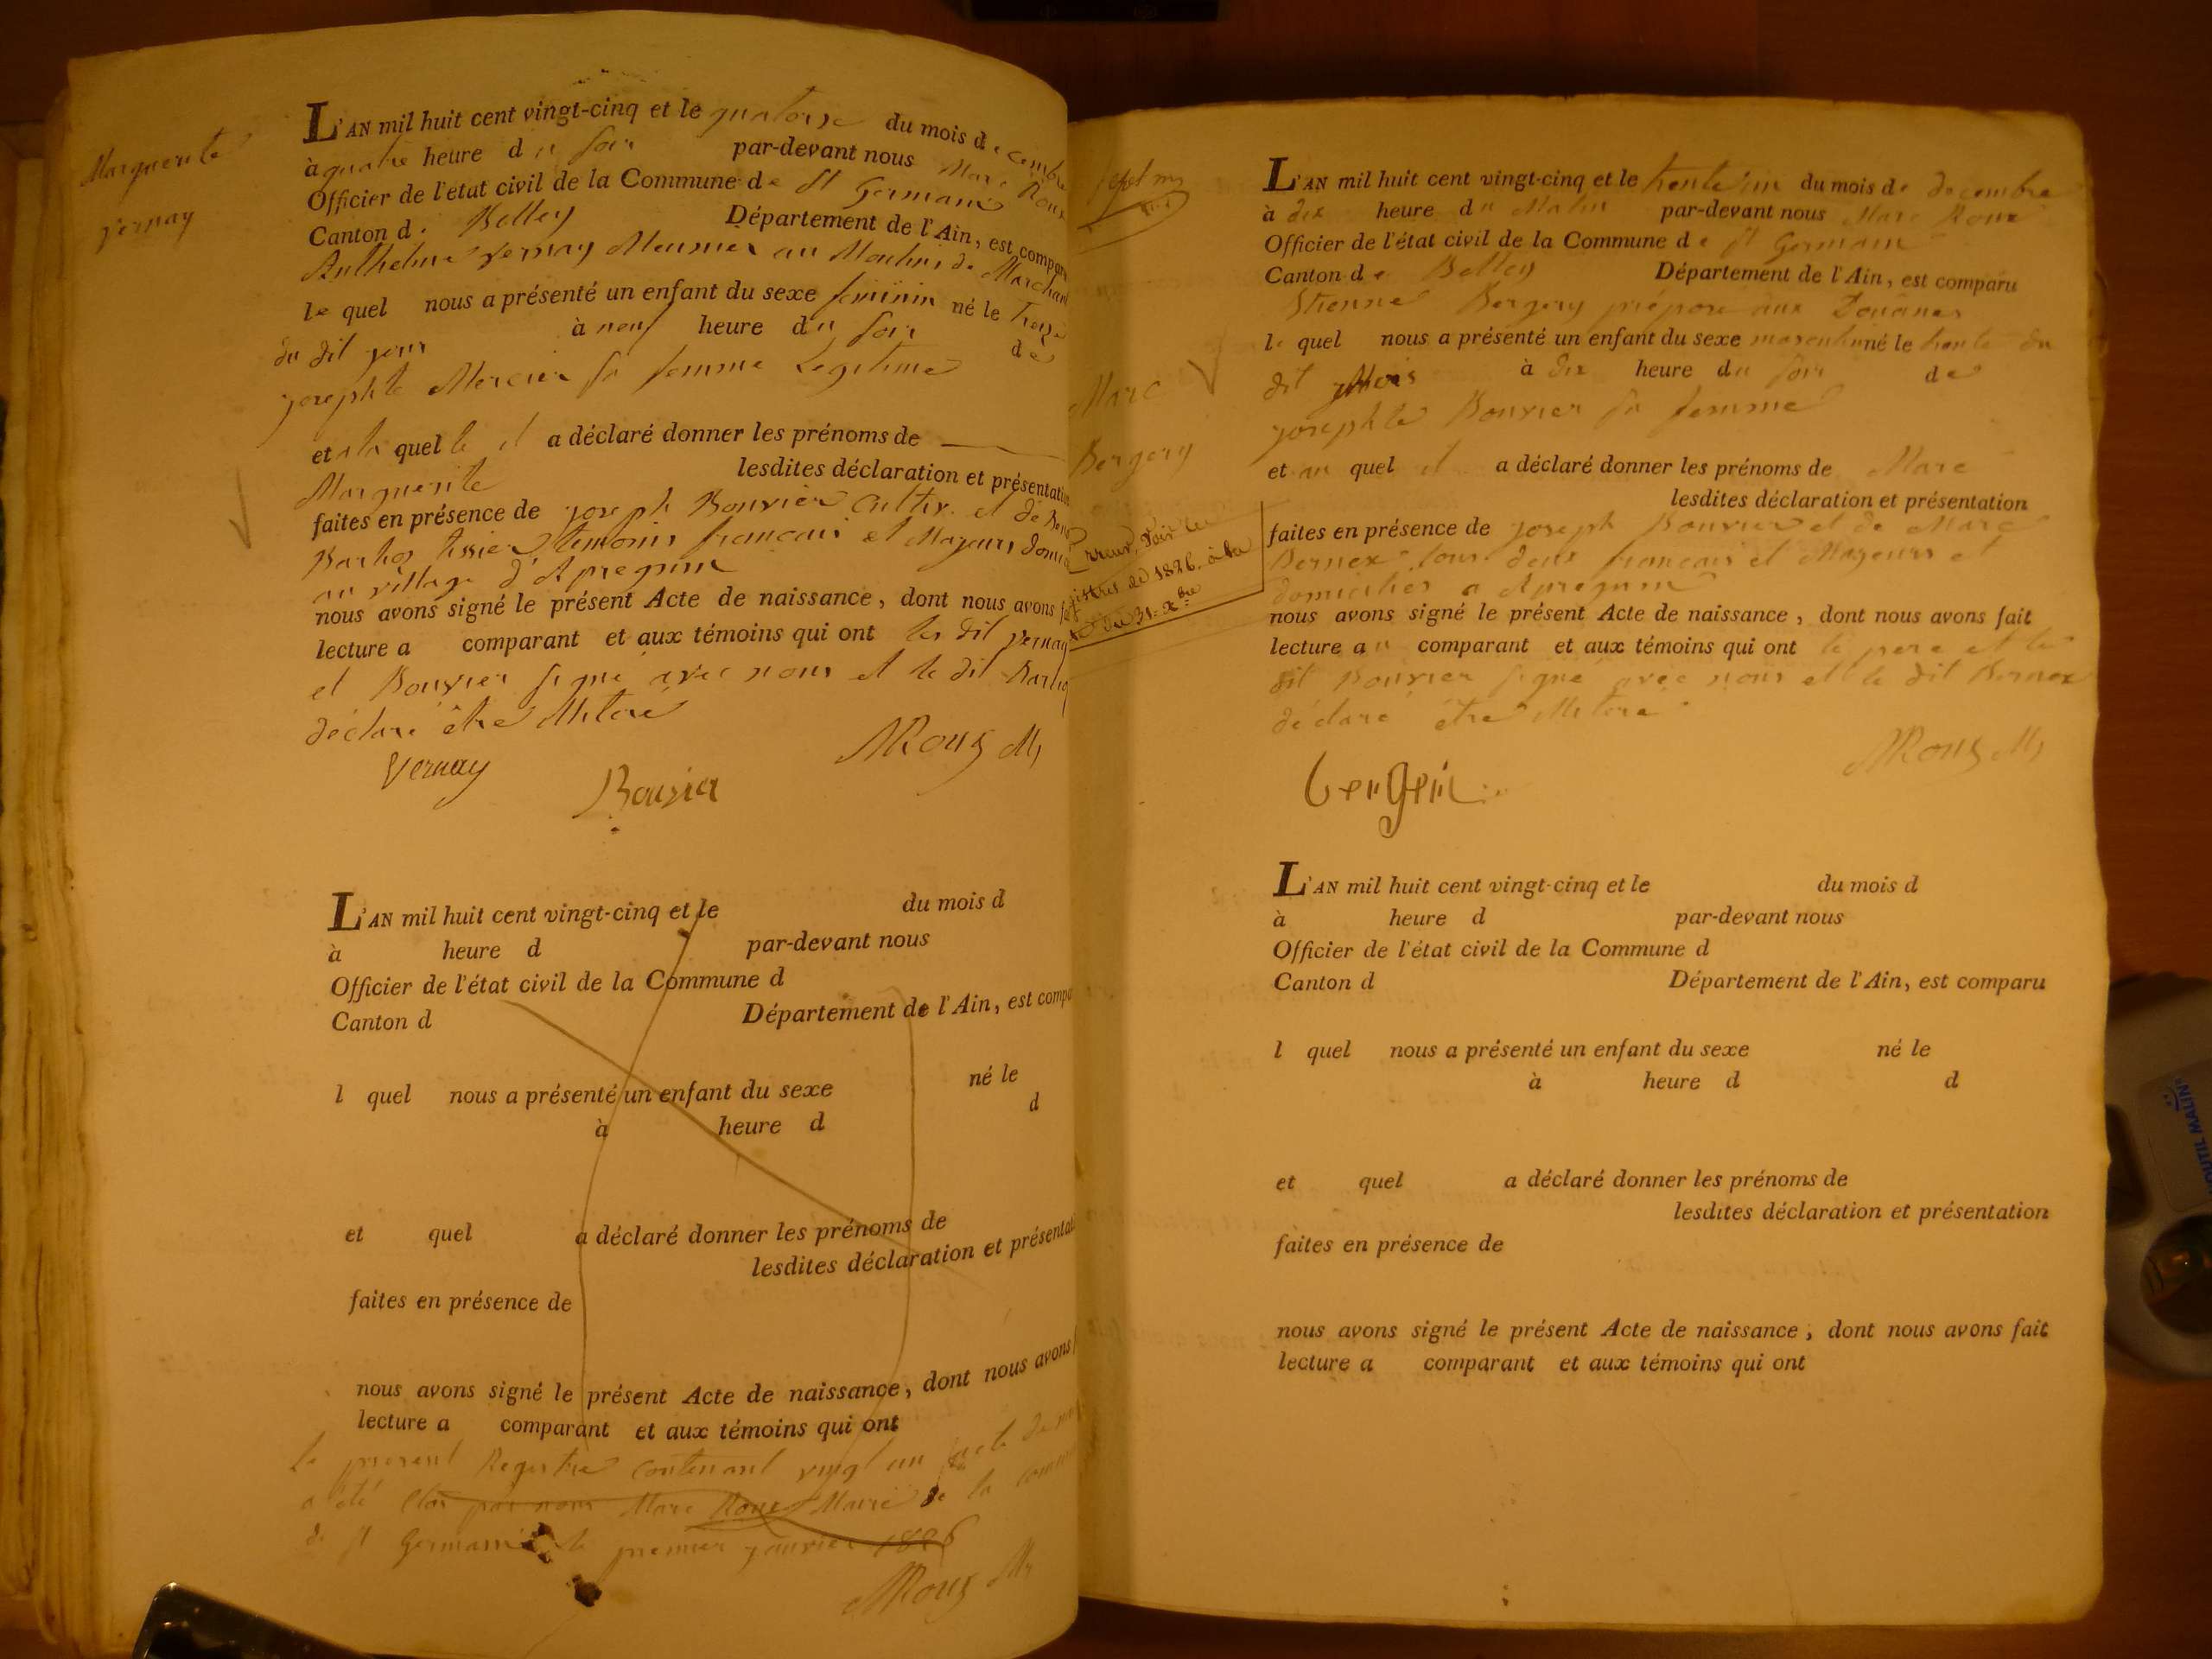 Marguerite
Vernay
L'AN mil huit cent vingt-cinq et le quatorze du mois decembre
à quatre heure du soir par-devant nous Marc Roux
Officier de l'état civil de la Commune de St Germain
Canton de Belley Département de l'Ain, est compar
Anthelme Vernay Meunier au Moulin de Marchan
le quel nous a présenté un enfant du sexe feminin né le treize
du dit jour à neuf heure du soir de
josephte Mercier sa femme Legitime
et a la quelle il a déclaré donner les prénoms de
Marguerite lesdites déclaration et présentatio
faites en présence de joseph Bouvier Cultiv. et de
tissier temoins francais et Majeurs domi
au village d'Apregnin
nous avons signé le présent Acte de naissance, dont nous avons f
lecture a comparant et aux témoins qui ont les dit Vernay
et Bouvier signé avec nous et le dit
déclaré être Mileré
Vernay
Bouvier
MRoux Mr
L'AN mil huit cent vingt-cinq et le du mois d
à heure d par-devant nous
Officier de l'état civil de la Commune d
Canton d Département de l'Ain, est compa
l quel nous a présenté un enfant du sexe né le
à heure d d
et quel a déclaré donner les prénoms de
lesdites déclaration et présentat
faites en présence de
nous avons signé le présent Acte de naissance, dont nous avons
lecture a comparant et aux témoins qui ont
le present Registre contenant vingt un acte de
a été Clos par nous Marc Roux Maire de la comm
de St Germain le premier janvier 1826
MRoux Mr
L'AN mil huit cent vingt-cinq et le trente un du mois de decembre
à dix heure du Matin par-devant nous Marc Roux
Officier de l'état civil de la Commune de St Germain
Canton de Belley Département de l'Ain, est comparu
Etienne Bergery préposé aux Douanes
le quel nous a présenté un enfant du sexe masculin né le trente du
dit Mois à dix heure du soir de
josephte Bouvier sa femme
Marc
Bergery
et au quel il a déclaré donner les prénoms de Marc
lesdites déclaration et présentation
faites en présence de joseph Bouvier et de Marc
Bernex tous deux francais et Majeurs et
domiciliés a Apregnin
Erreur, Voir le
registre de 1826, à la
du 31 Xbre
nous avons signé le présent Acte de naissance, dont nous avons fait
lecture au comparant et aux témoins qui ont le pere et le
dit Bouvier signé avec nous et le dit Bernex
déclaré être Mileré
MRoux Mr
L'AN mil huit cent vingt-cinq et le du mois d
à heure d par-devant nous
Officier de l'état civil de la Commune d
Canton d Département de l'Ain, est comparu
l quel nous a présenté un enfant du sexe né le
à heure d d
et quel a déclaré donner les prénoms de
lesdites déclaration et présentation
faites en présence de
nous avons signé le présent Acte de naissance, dont nous avons fait
lecture a comparant et aux témoins qui ont
OUTIL MALIN